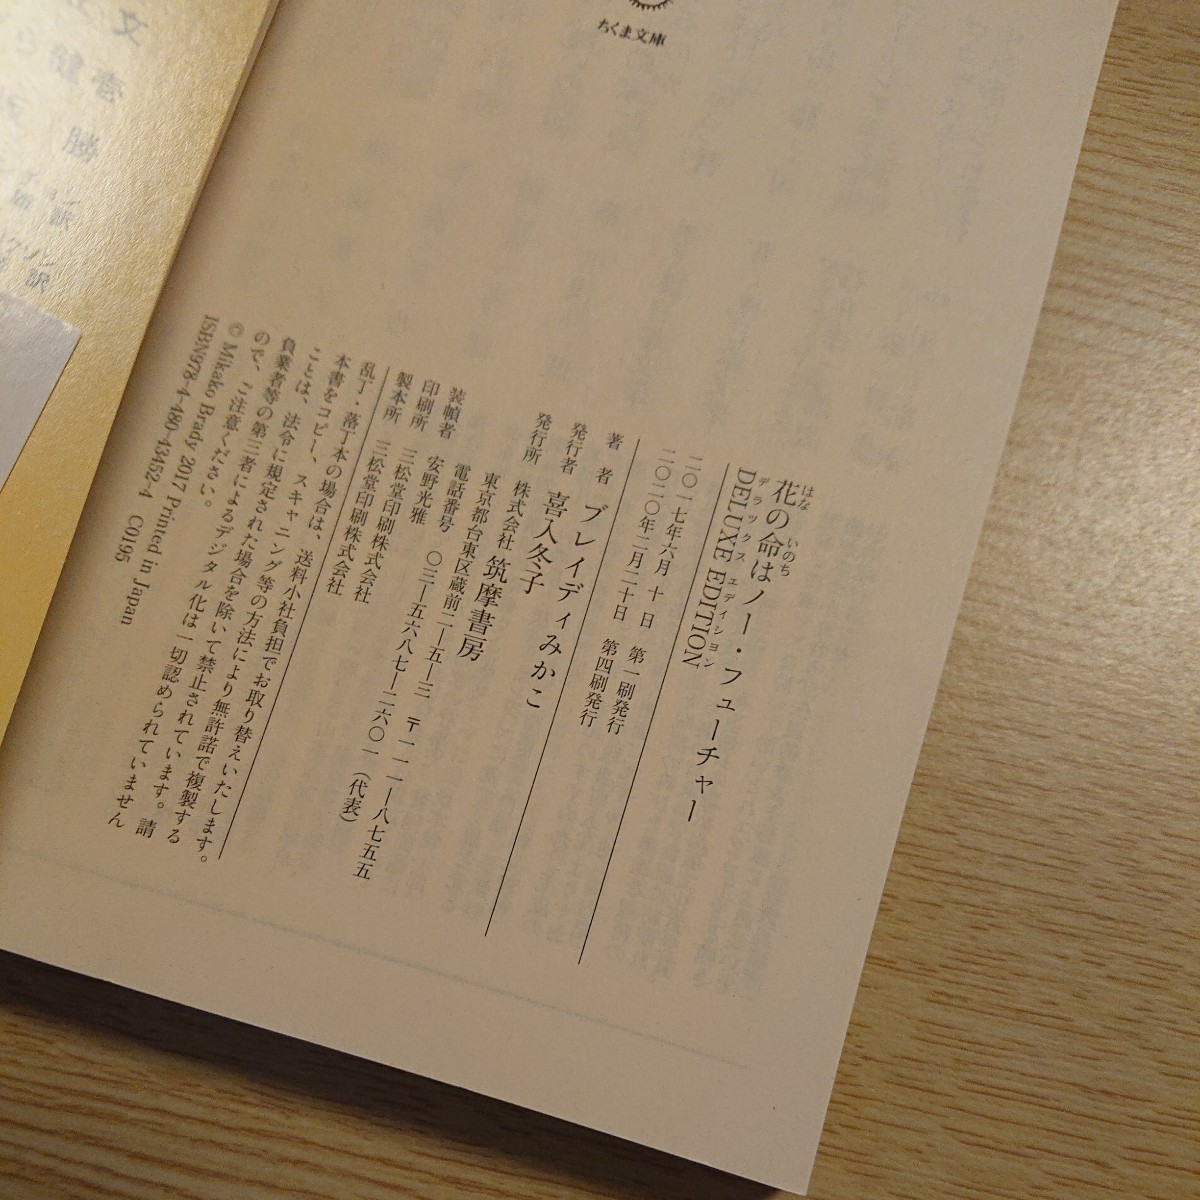 ちくま文庫
花の命はノー・フューチャー
はな いのち
DELUXE EDITION
デラックス エディション
二〇一七年六月 十 日 第一刷発行
二〇二〇年二月二十日 第四刷発行
著 者 ブレイディみかこ
発行者 喜入冬子
発行所 株式会社 筑摩書房
東京都台東区蔵前二―五―三 〒一一一―八七五五
電話番号 〇三―五六八七―二六〇一（代表）
装幀者 安野光雅
印刷所 三松堂印刷株式会社
製本所 三松堂印刷株式会社
乱丁・落丁本の場合は、送料小社負担でお取り替えいたします。
本書をコピー、スキャニング等の方法により無許諾で複製する
ことは、法令に規定された場合を除いて禁止されています。請
負業者等の第三者によるデジタル化は一切認められていません
ので、ご注意ください。
© Mikako Brady 2017 Printed in Japan
ISBN978-4-480-43452-4 C0195
文
壱
健
勝
訳
訳